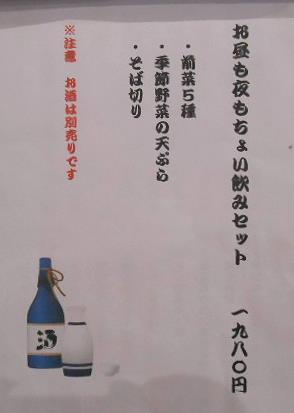 お昼も夜もちょい飲みセット 一九八〇円
・前菜５種
・季節野菜の天ぷら
・そば切り
※注意 お酒は別売りです
酒